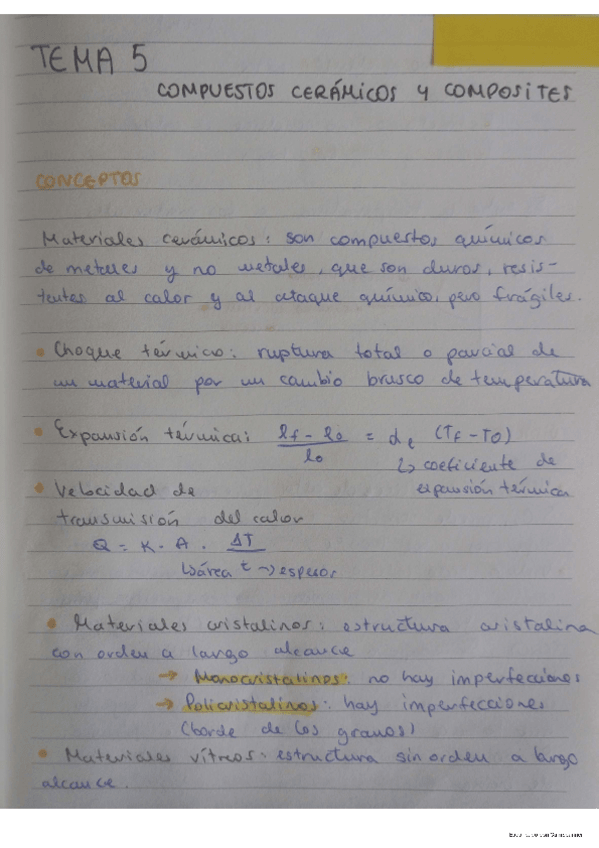 TEMA 5
COMPUESTOS CERÁMICOS Y COMPOSITES
CONCEPTOS
Materiales cerámicos: son compuestos químicos
de metales y no metales, que son duros, resis-
tentes al calor y al ataque químico, pero frágiles.
• Choque térmico: ruptura total o parcial de
un material por un cambio brusco de temperatura
• Expansión térmica: lf - lo / lo = αl (Tf - TO)
↳ coeficiente de
expansión térmica
• Velocidad de
transmisión del calor
Q = K · A · ΔT / t
↳área t → espesor
• Materiales cristalinos: estructura cristalina
con orden a largo alcance
→ Monocristalinos: no hay imperfecciones
→ Policristalinos: hay imperfecciones
(borde de los granos)
• Materiales vítreos: estructura sin orden a largo
alcance.